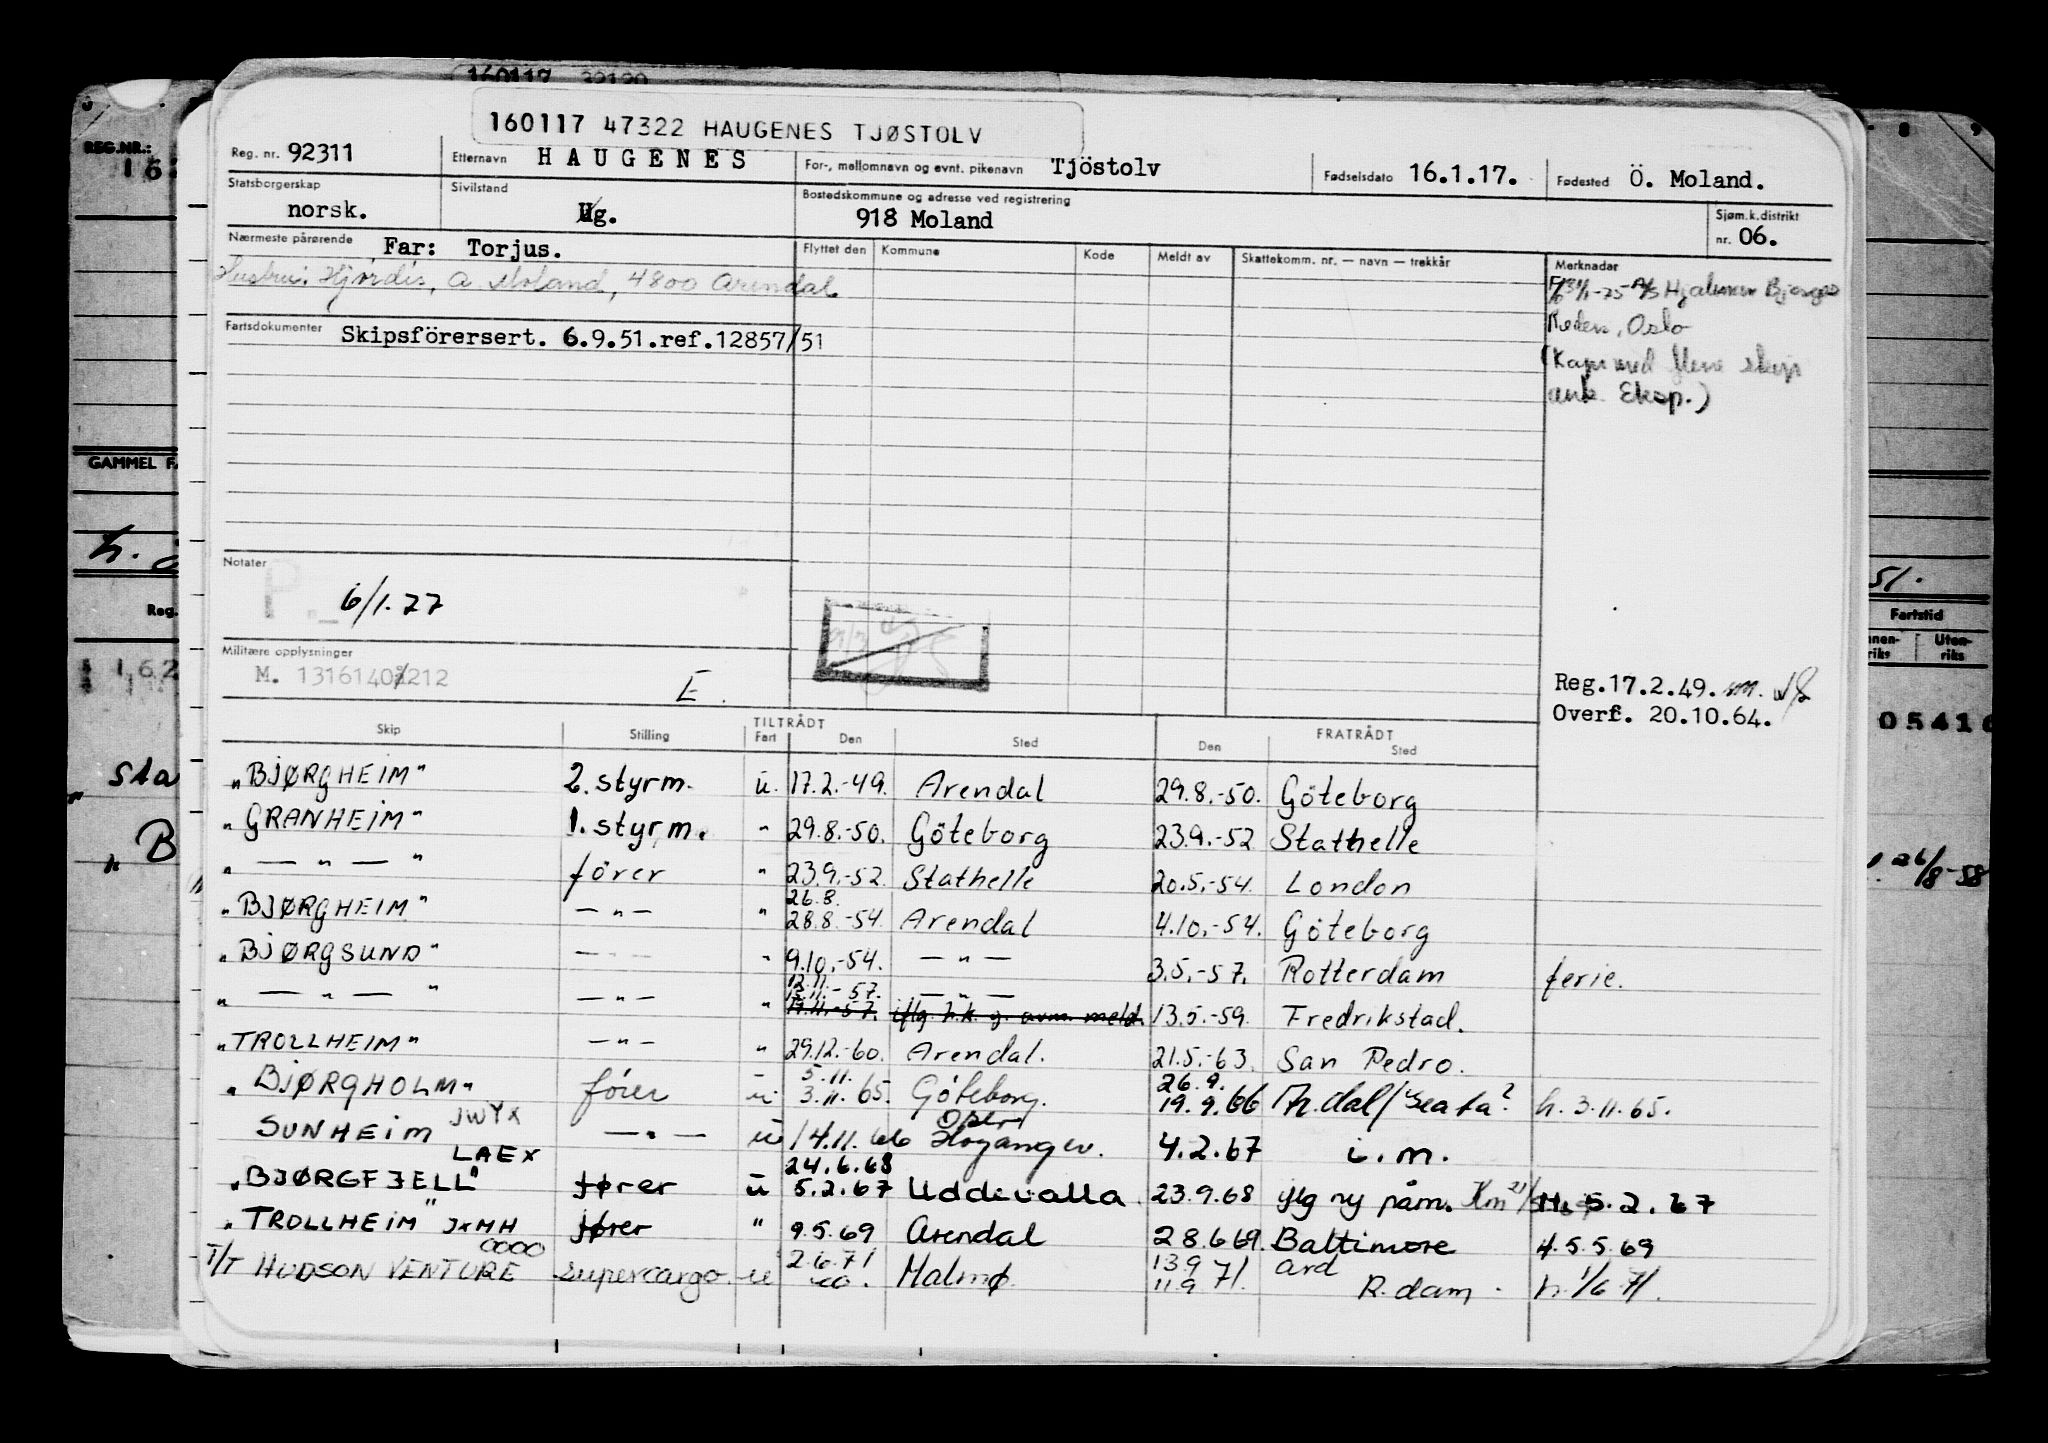 160117 39190
160117 47322 HAUGENES TJØSTOLV
Reg. nr. 92311 Etternavn HAUGENES For-, mellomnavn og evnt. pikenavn Tjöstolv Fødselsdato 16.1.17. Fødested Ö. Moland.
Statsborgerskap norsk. Sivilstand Ug. Bostedskommune og adresse ved registrering 918 Moland Sjøm.k.distrikt nr. 06.
Nærmeste pårørende Far: Torjus. Flyttet den Kommune Kode Meldt av Skattekomm. nr. — navn — trekkår Merknader
Hustru: Hjørdis, A. Moland, 4800 Arendal
1/1-75 A/S Hjalmar Bjørges
Rederi, Oslo
(Kapt med flere skip
ank. Eksp.)
Fartsdokumenter Skipsförersert. 6.9.51.ref.12857/51
Notater
P. 6/1.77
Militære opplysninger
M. 1316140 212 E.
Reg.17.2.49.
Overf. 20.10.64.
Skip Stilling TILTRÅDT Fart Den Sted FRATRÅDT Den Sted
"BJØRGHEIM" 2. styrm. u. 17.2.-49. Arendal 29.8.-50. Göteborg
"GRANHEIM" 1. styrm. " 29.8.-50. Göteborg 23.9.-52 Stathelle
" — " — " förer " 23.9.-52. Stathelle 20.5.-54. London
"BJØRGHEIM" — " — " 26.8. 28.8.-54 Arendal 4.10.-54. Göteborg
"BJØRGSUND" — " — " 9.10.-54. — " — 3.5.-57. Rotterdam ferie.
" — " — " — " — " 12.11. 13.11.-57. — " —
17.11.-57. iflg h.k. g. avm. meld. 13.5.-59. Fredrikstad.
"TROLLHEIM" — " — " 29.12.-60. Arendal. 21.5.-63. San Pedro.
"BJØRGHOLM" fører u 5.11. 3.11.65. Göteborg. 26.9. 19.9.66 Tr.dal/Seata? h. 3.11.65.
JWYX
SUNHEIM — " — u 14.11.66 Høyanger. 4.2.67 i.m.
LAEX
"BJØRGFJELL" fører u 24.6.68 5.2.67 Uddevalla 23.9.68 iflg ny påm. H. 5.2.67
"TROLLHEIM" JXMH fører " 9.5.69 Arendal 28.6.69. Baltimore 4.5.5.69
OOOO
T/T HUDSON VENTURE supercargo u 2.6.71 Malmø 13.9 11.9 71. ard R.dam. h. 1/6 71.
REG.NR.:
162
GAMMEL FA
h.
Reg.
162
sta
"B
8 9
51.
Fartstid
nnen- riks Uten- riks
05416
26/8-58